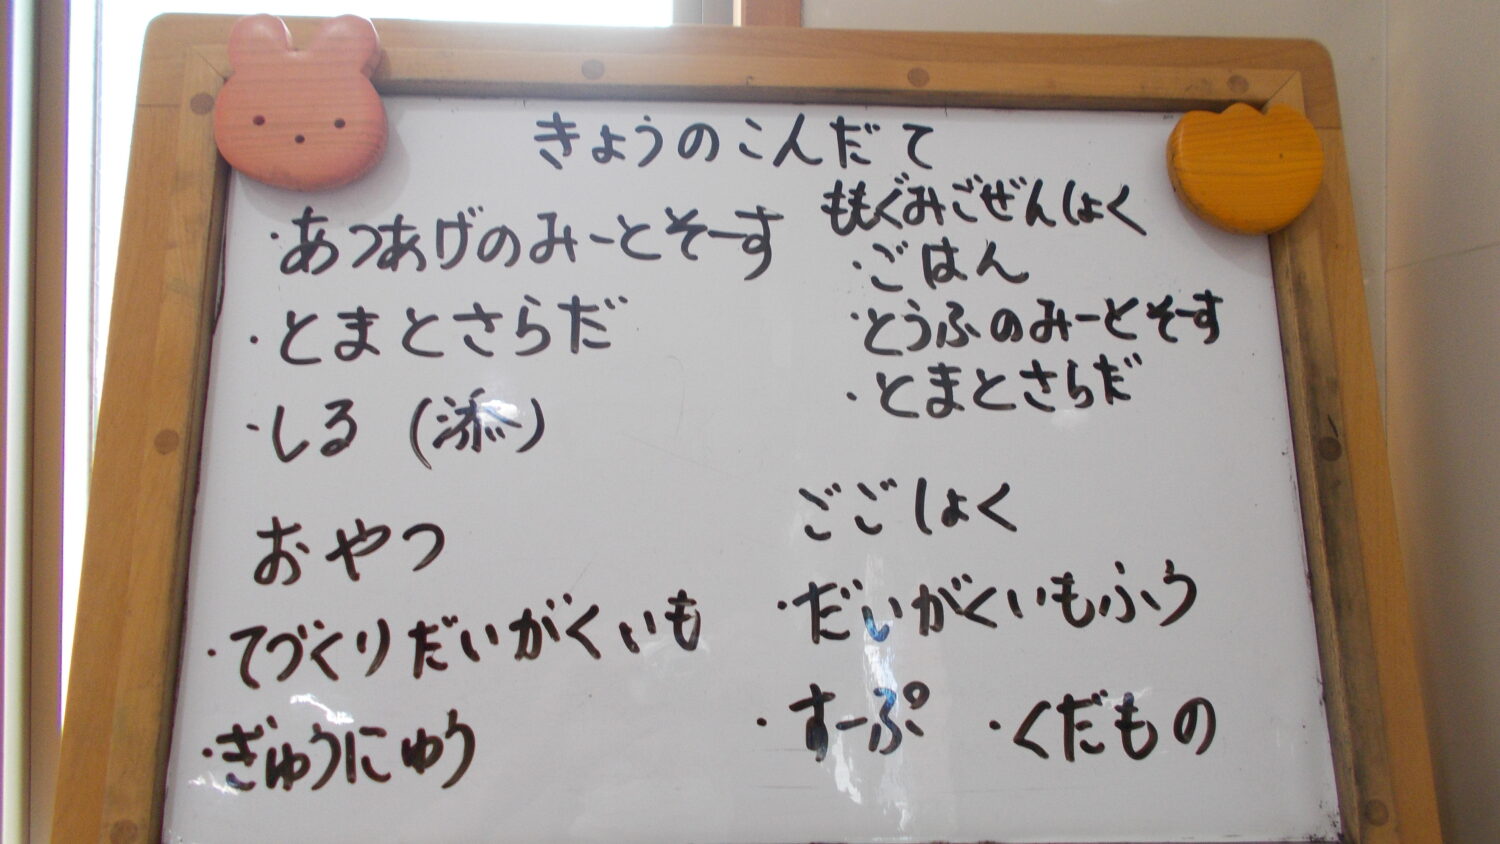 きょうのこんだて
・あつあげのみーとそーす
・とまとさらだ
・しる (添)
おやつ
・てづくりだいがくいも
・ぎゅうにゅう
ももぐみごぜんしょく
・ごはん
・とうふのみーとそーす
・とまとさらだ
ごごしょく
・だいがくいもふう
・すーぷ ・くだもの